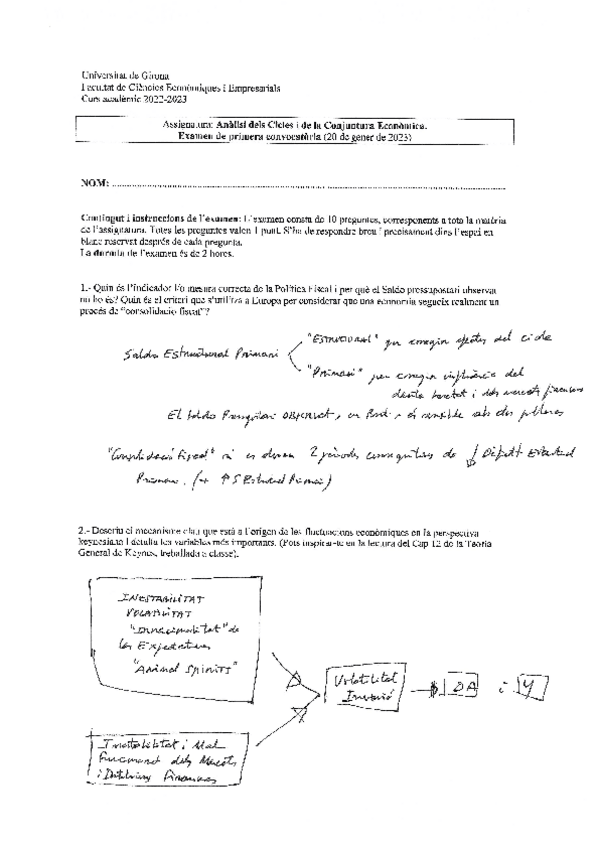 Universitat de Girona
Facultat de Ciències Econòmiques i Empresarials
Curs acadèmic 2022-2023
Assignatura: Anàlisi dels Cicles i de la Conjuntura Econòmica.
Examen de primera convocatòria (20 de gener de 2023)
NOM:
Contingut i instruccions de l'examen: L'examen consta de 10 preguntes, corresponents a tota la matèria
de l'assignatura. Totes les preguntes valen 1 punt. S'ha de respondre breu i precisament dins l'espai en
blanc reservat després de cada pregunta.
La durada de l'examen és de 2 hores.
1.- Quin és l'indicador i/o mesura correcta de la Política Fiscal i per què el Saldo pressupostari observat
no ho és? Quin és el criteri que s'utilitza a Europa per considerar que una economia segueix realment un
procés de "consolidació fiscal"?
"ESTRUCTURAL" per corregir efectes del cicle
Saldo Estructural Primari
"Primari" per corregir influència del
deute heretat i dels mercats financers
El Saldo Pressupostari OBSERVAT, és sensible als dos
"Consolidació Fiscal" si es donen 2 períodes consecutius de ↓ Dèficit Estructural
Primari. (o ↑ S Estructural Primari)
2.- Descriu el mecanisme clau que està a l'origen de les fluctuacions econòmiques en la perspectiva
keynesiana i detalla les variables més importants. (Pots inspirar-te en la lectura del Cap 12 de la Teoria
General de Keynes, treballada a classe).
INESTABILITAT
VOLATILITAT
"Irracionalitat" de
les Expectatives
"Animal Spirits"
Volatilitat
Inversió
DA i Y
Inestabilitat i Mal
Funcionament dels Mercats
i Financeres